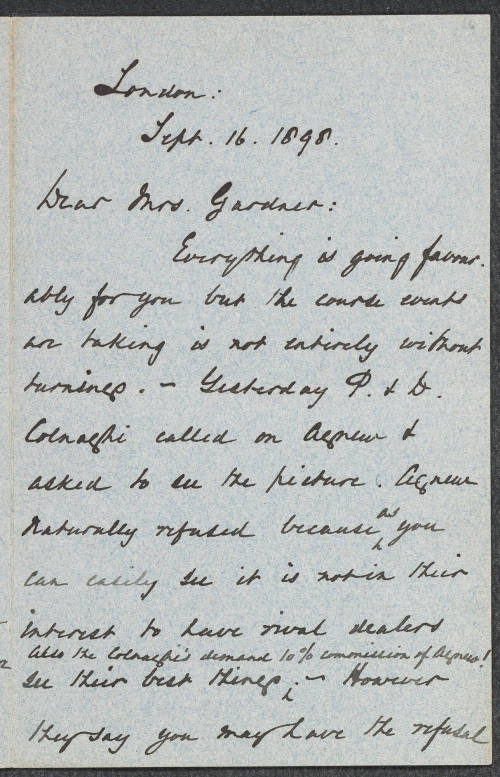 London:
Sept. 16. 1898.
Dear Mrs. Gardner:
Everything is going favour-
ably for you but the course events
are taking is not entirely without
turnings. – Yesterday P. & D.
Colnaghi called on Agnew &
asked to see the picture. Agnew
naturally refused because as you
can easily see it is not in their
interest to have rival dealers
Also the Colnaghi's demand 10% commission of Agnew!
see their best things. – However
they say you may have the refusal